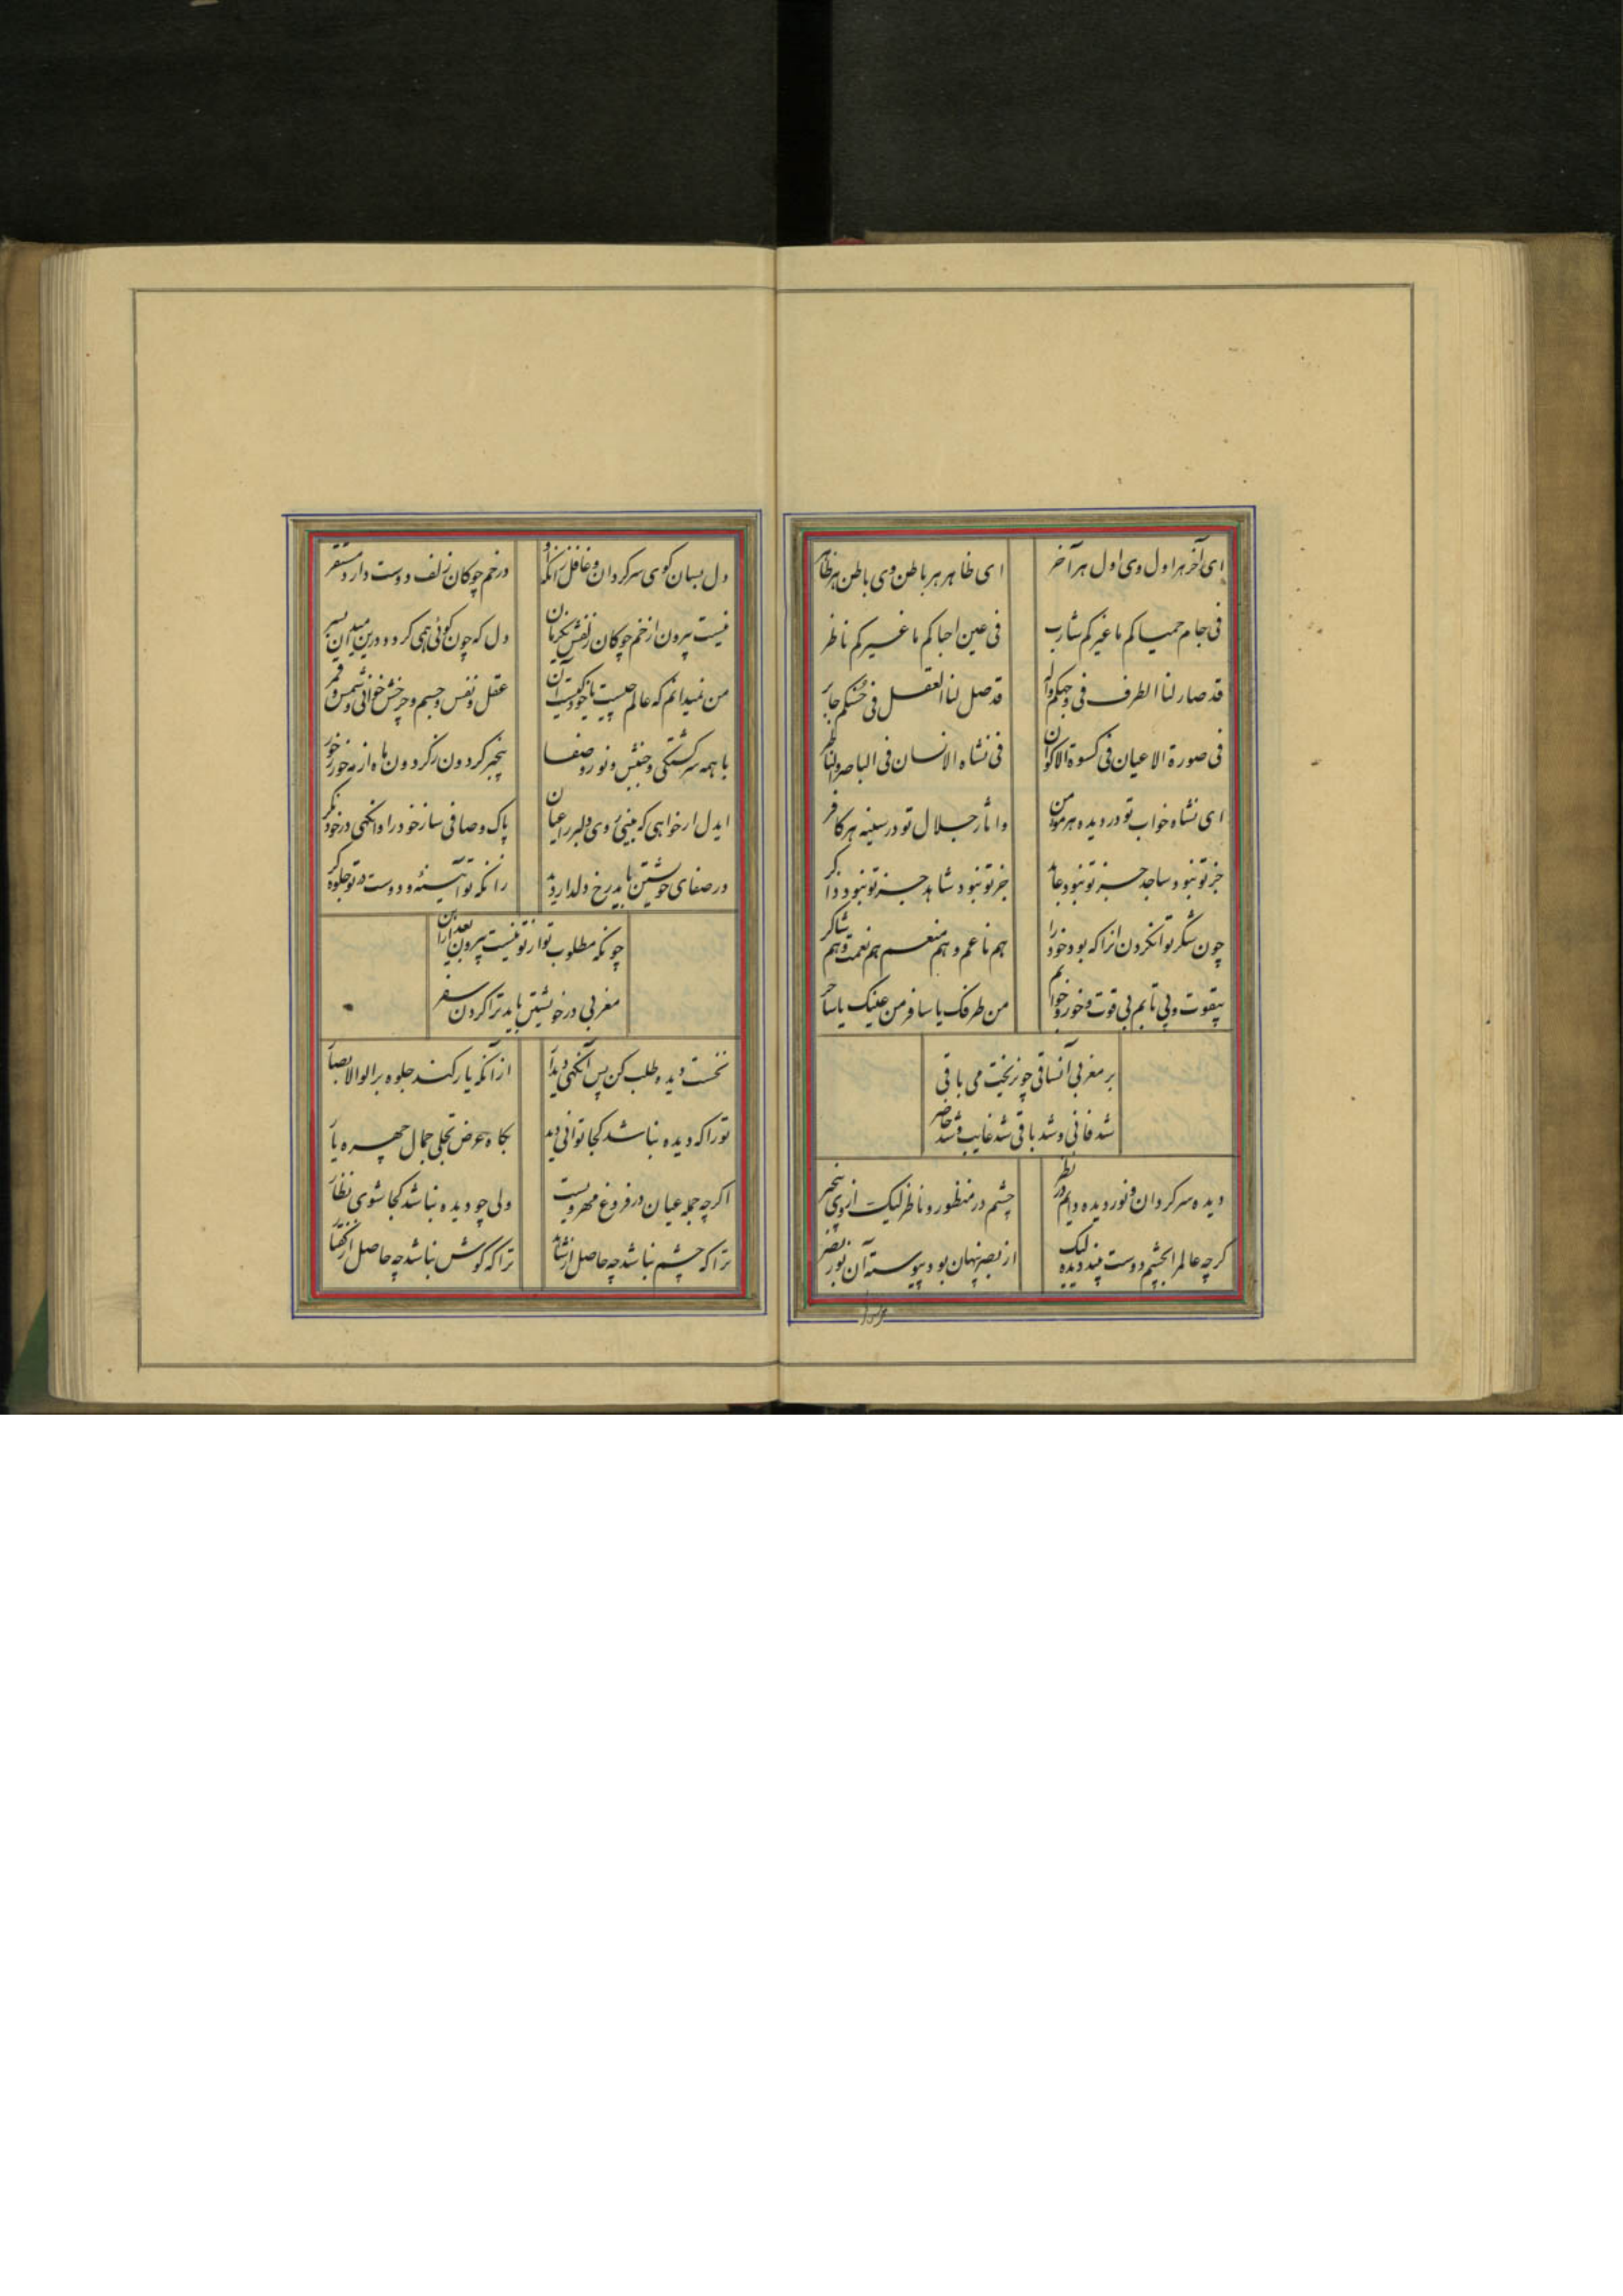 ای آخر هر اول وی اول هر آخر
ای ظاهر هر باطن وی باطن هر ظاهر
فی جام حمیاکم ما غیرکم شارب
فی عین احباکم ما غیرکم ناظر
قد صار لنا الطرف فی وجهکم واله
قد صل لنا العقل فی حسنکم حایر
فی صورة الاعیان فی کسوة الاکوان
فی نشاه الانسان فی الباصر والناظر
ای نشاه خواب تو در دیده هر مومن
واثار جلال تو در سینه هر کافر
جز تو نبود ساجد جز تو نبود عابد
جز تو نبود شاهد جز تو نبود ذاکر
چون شکر تو انکردن انرا که بود خود را
هم ناعم و هم منعم هم نعمت و هم شاکر
بیقوت و بی تابم بی قوت و خور و خوابم
من طرفک یا سافر من عینک یا ساحر
بر مغربی آنساقی چو ریخت می باقی
شد فانی و شد باقی شد غایب و شد حاضر
دیده سرکردان و نور دیده دایم در نظر
چشم در منظور و ناظر لیک از وی بیخبر
کرچه عالم را بچشم دوست بیند دیده لیک
از بصر پنهان بود پیوسته آن نور بصر
دل بسان کوی سرکردان و غافل زانکه او
در خم چوکان زلف دوست دارد مستقر
نیست بیرون از خم چوکان زلفش یکزمان
دل که چون کوئی همی کردد درین میدان بسر
من نمیدانم که عالم چیست یا خود کیست آن
عقل و نفس و جسم و چرخش خوانی و شمس و قمر
با همه سرکشتکی و جنبش و نور و صفا
بیخبر کردون ز کردون ماه از مه خور ز خور
ایدل ار خواهی که بینی روی دلبر را عیان
پاک و صافی ساز خود را وانکهی در خود نکر
در صفای خویشتن باید رخ دلدار دید
زانکه تو آئینه و دوست در تو جلوه کر
چونکه مطلوب تو از تو نیست بیرون بعد ازان
مغربی در خویشتن باید ترا کردن سفر
نخست دیده طلب کن پس آنکهی دیدار
از آنکه یار کند جلوه بر الوالابصار
تورا که دیده نباشد کجا توانی دید
بکاه عرض تجلی جمال چهره یار
اکرچه جمله عیان در فروغ مهرویست
ولی چو دیده نباشد کجا شوی نظار
ترا که چشم نباشد چه حاصل از شاهد
ترا که کوش نباشد چه حاصل از کفتار